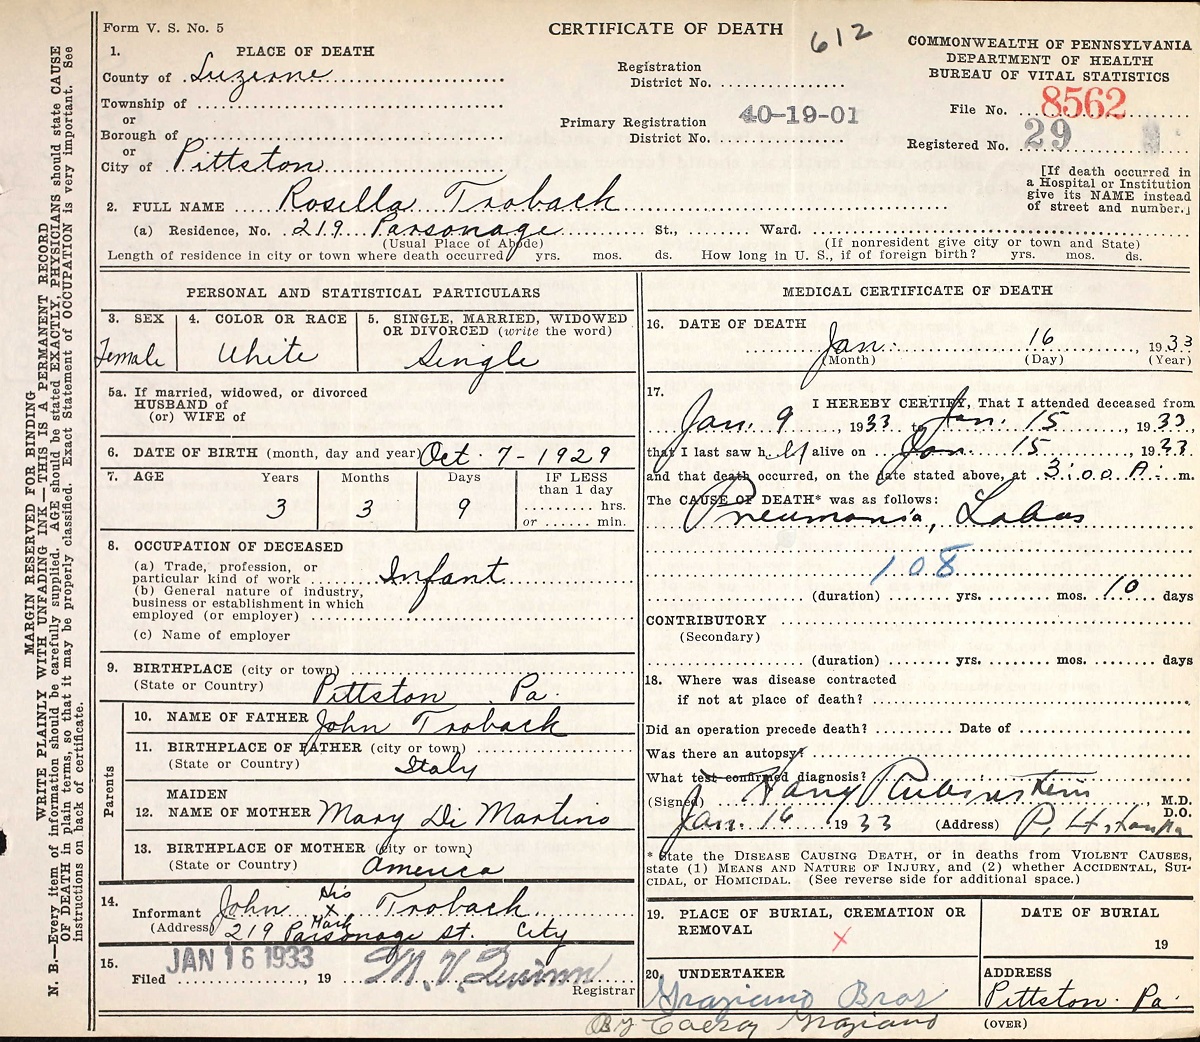 Form V. S. No. 5
CERTIFICATE OF DEATH
612
COMMONWEALTH OF PENNSYLVANIA
DEPARTMENT OF HEALTH
BUREAU OF VITAL STATISTICS
1. PLACE OF DEATH
County of Luzerne
Township of
or
Borough of
or
City of Pittston
Registration
District No.
Primary Registration
District No. 40-19-01
File No. 8562
Registered No. 29
[If death occurred in
a Hospital or Institution
give its NAME instead
of street and number.]
2. FULL NAME Rosilla Troback
(a) Residence, No. 219 Parsonage St., Ward.
(Usual Place of Abode) (If nonresident give city or town and State)
Length of residence in city or town where death occurred yrs. mos. ds. How long in U. S., if of foreign birth? yrs. mos. ds.
PERSONAL AND STATISTICAL PARTICULARS
3. SEX
Female
4. COLOR OR RACE
White
5. SINGLE, MARRIED, WIDOWED
OR DIVORCED (write the word)
Single
5a. If married, widowed, or divorced
HUSBAND of
(or) WIFE of
6. DATE OF BIRTH (month, day and year) Oct. 7 - 1929
7. AGE Years Months Days IF LESS
than 1 day
3 3 9 hrs.
or min.
8. OCCUPATION OF DECEASED
(a) Trade, profession, or
particular kind of work Infant
(b) General nature of industry,
business or establishment in which
employed (or employer)
(c) Name of employer
9. BIRTHPLACE (city or town)
(State or Country) Pittston Pa.
Parents
10. NAME OF FATHER John Troback
11. BIRTHPLACE OF FATHER (city or town)
(State or Country) Italy
12. MAIDEN
NAME OF MOTHER Mary Di Martino
13. BIRTHPLACE OF MOTHER (city or town)
(State or Country) America
14.
Informant John His x Mark Troback
(Address) 219 Parsonage St. City
15.
Filed JAN 16 1933, 19 M. V. Quinn
Registrar
MEDICAL CERTIFICATE OF DEATH
16. DATE OF DEATH
Jan. 16 1933
(Month) (Day) (Year)
17.
I HEREBY CERTIFY, That I attended deceased from
Jan. 9, 1933 to Jan. 15, 1933,
that I last saw her alive on Jan. 15 1933
and that death occurred, on the date stated above, at 3:00 A. m.
The CAUSE OF DEATH* was as follows:
Pneumonia, Lobar
108
(duration) yrs. mos. 10 days
CONTRIBUTORY
(Secondary)
(duration) yrs. mos. days
18. Where was disease contracted
if not at place of death?
Did an operation precede death? Date of
Was there an autopsy?
What test confirmed diagnosis?
(Signed) Harry Rubinstein M.D.
D.O.
Jan. 16 1933 (Address)
* State the DISEASE CAUSING DEATH, or in deaths from VIOLENT CAUSES,
state (1) MEANS AND NATURE OF INJURY, and (2) whether ACCIDENTAL, SUI-
CIDAL, or HOMICIDAL. (See reverse side for additional space.)
19. PLACE OF BURIAL, CREMATION OR
REMOVAL
X
DATE OF BURIAL
19
20. UNDERTAKER
Graziano Bros
By Graziano
ADDRESS
Pittston Pa.
(OVER)
MARGIN RESERVED FOR BINDING
WRITE PLAINLY WITH UNFADING INK—THIS IS A PERMANENT RECORD
N. B.—Every item of information should be carefully supplied. AGE should be stated EXACTLY. PHYSICIANS should state CAUSE
OF DEATH in plain terms, so that it may be properly classified. Exact Statement of OCCUPATION is very important. See
instructions on back of certificate.